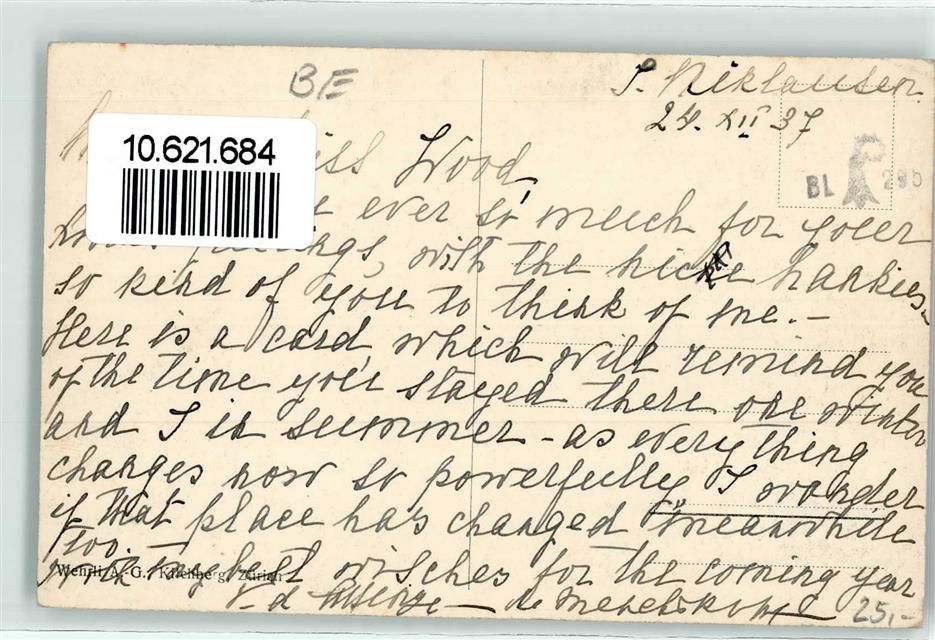 BE
S. Niklausen.
24. XII 37
10.621.684
BL
Miss Wood,
ever so much for your
greetings, with the nice hankies
so kind of you to think of me. –
Here is a card, which will remind you
of the time you stayed there one winter
and I in summer – as everything
changes now so powerfully I wonder
if that place has changed meanwhile
too. –
my best wishes for the coming year
Wehrli A. G., Kilchberg, Zürich
25,-